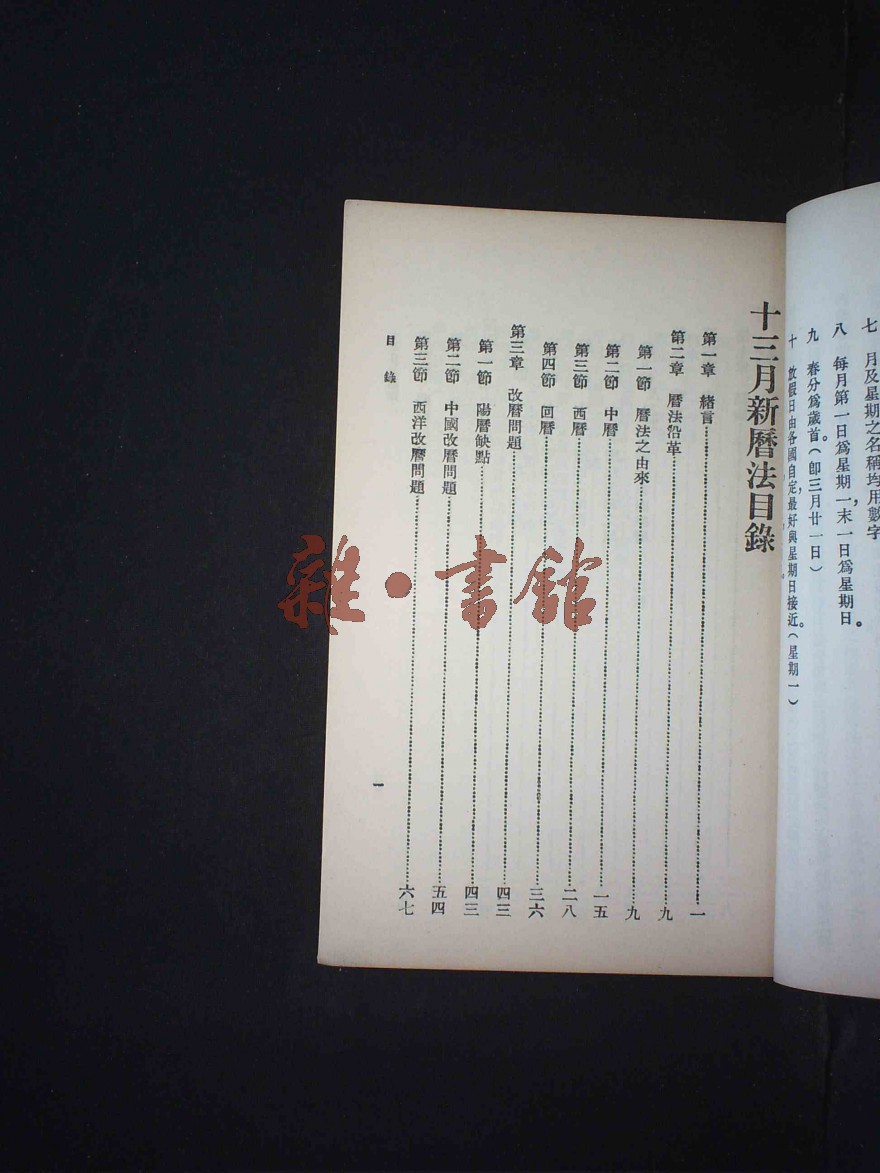 七　月及星期之名稱均用數字
八　每月第一日爲星期一，末一日爲星期日。
九　春分爲歲首。（卽三月廿一日）
十　放假日由各國自定，最好與星期日接近。（星期一）
十三月新曆法目錄
第一章　緒言……一
第二章　曆法沿革……九
第一節　曆法之由來……九
第二節　中曆……一五
第三節　西曆……二八
第四節　回曆……三六
第三章　改曆問題……四三
第一節　陽曆缺點……四三
第二節　中國改曆問題……五四
第三節　西洋改曆問題……六七
目錄
一
雜·書館